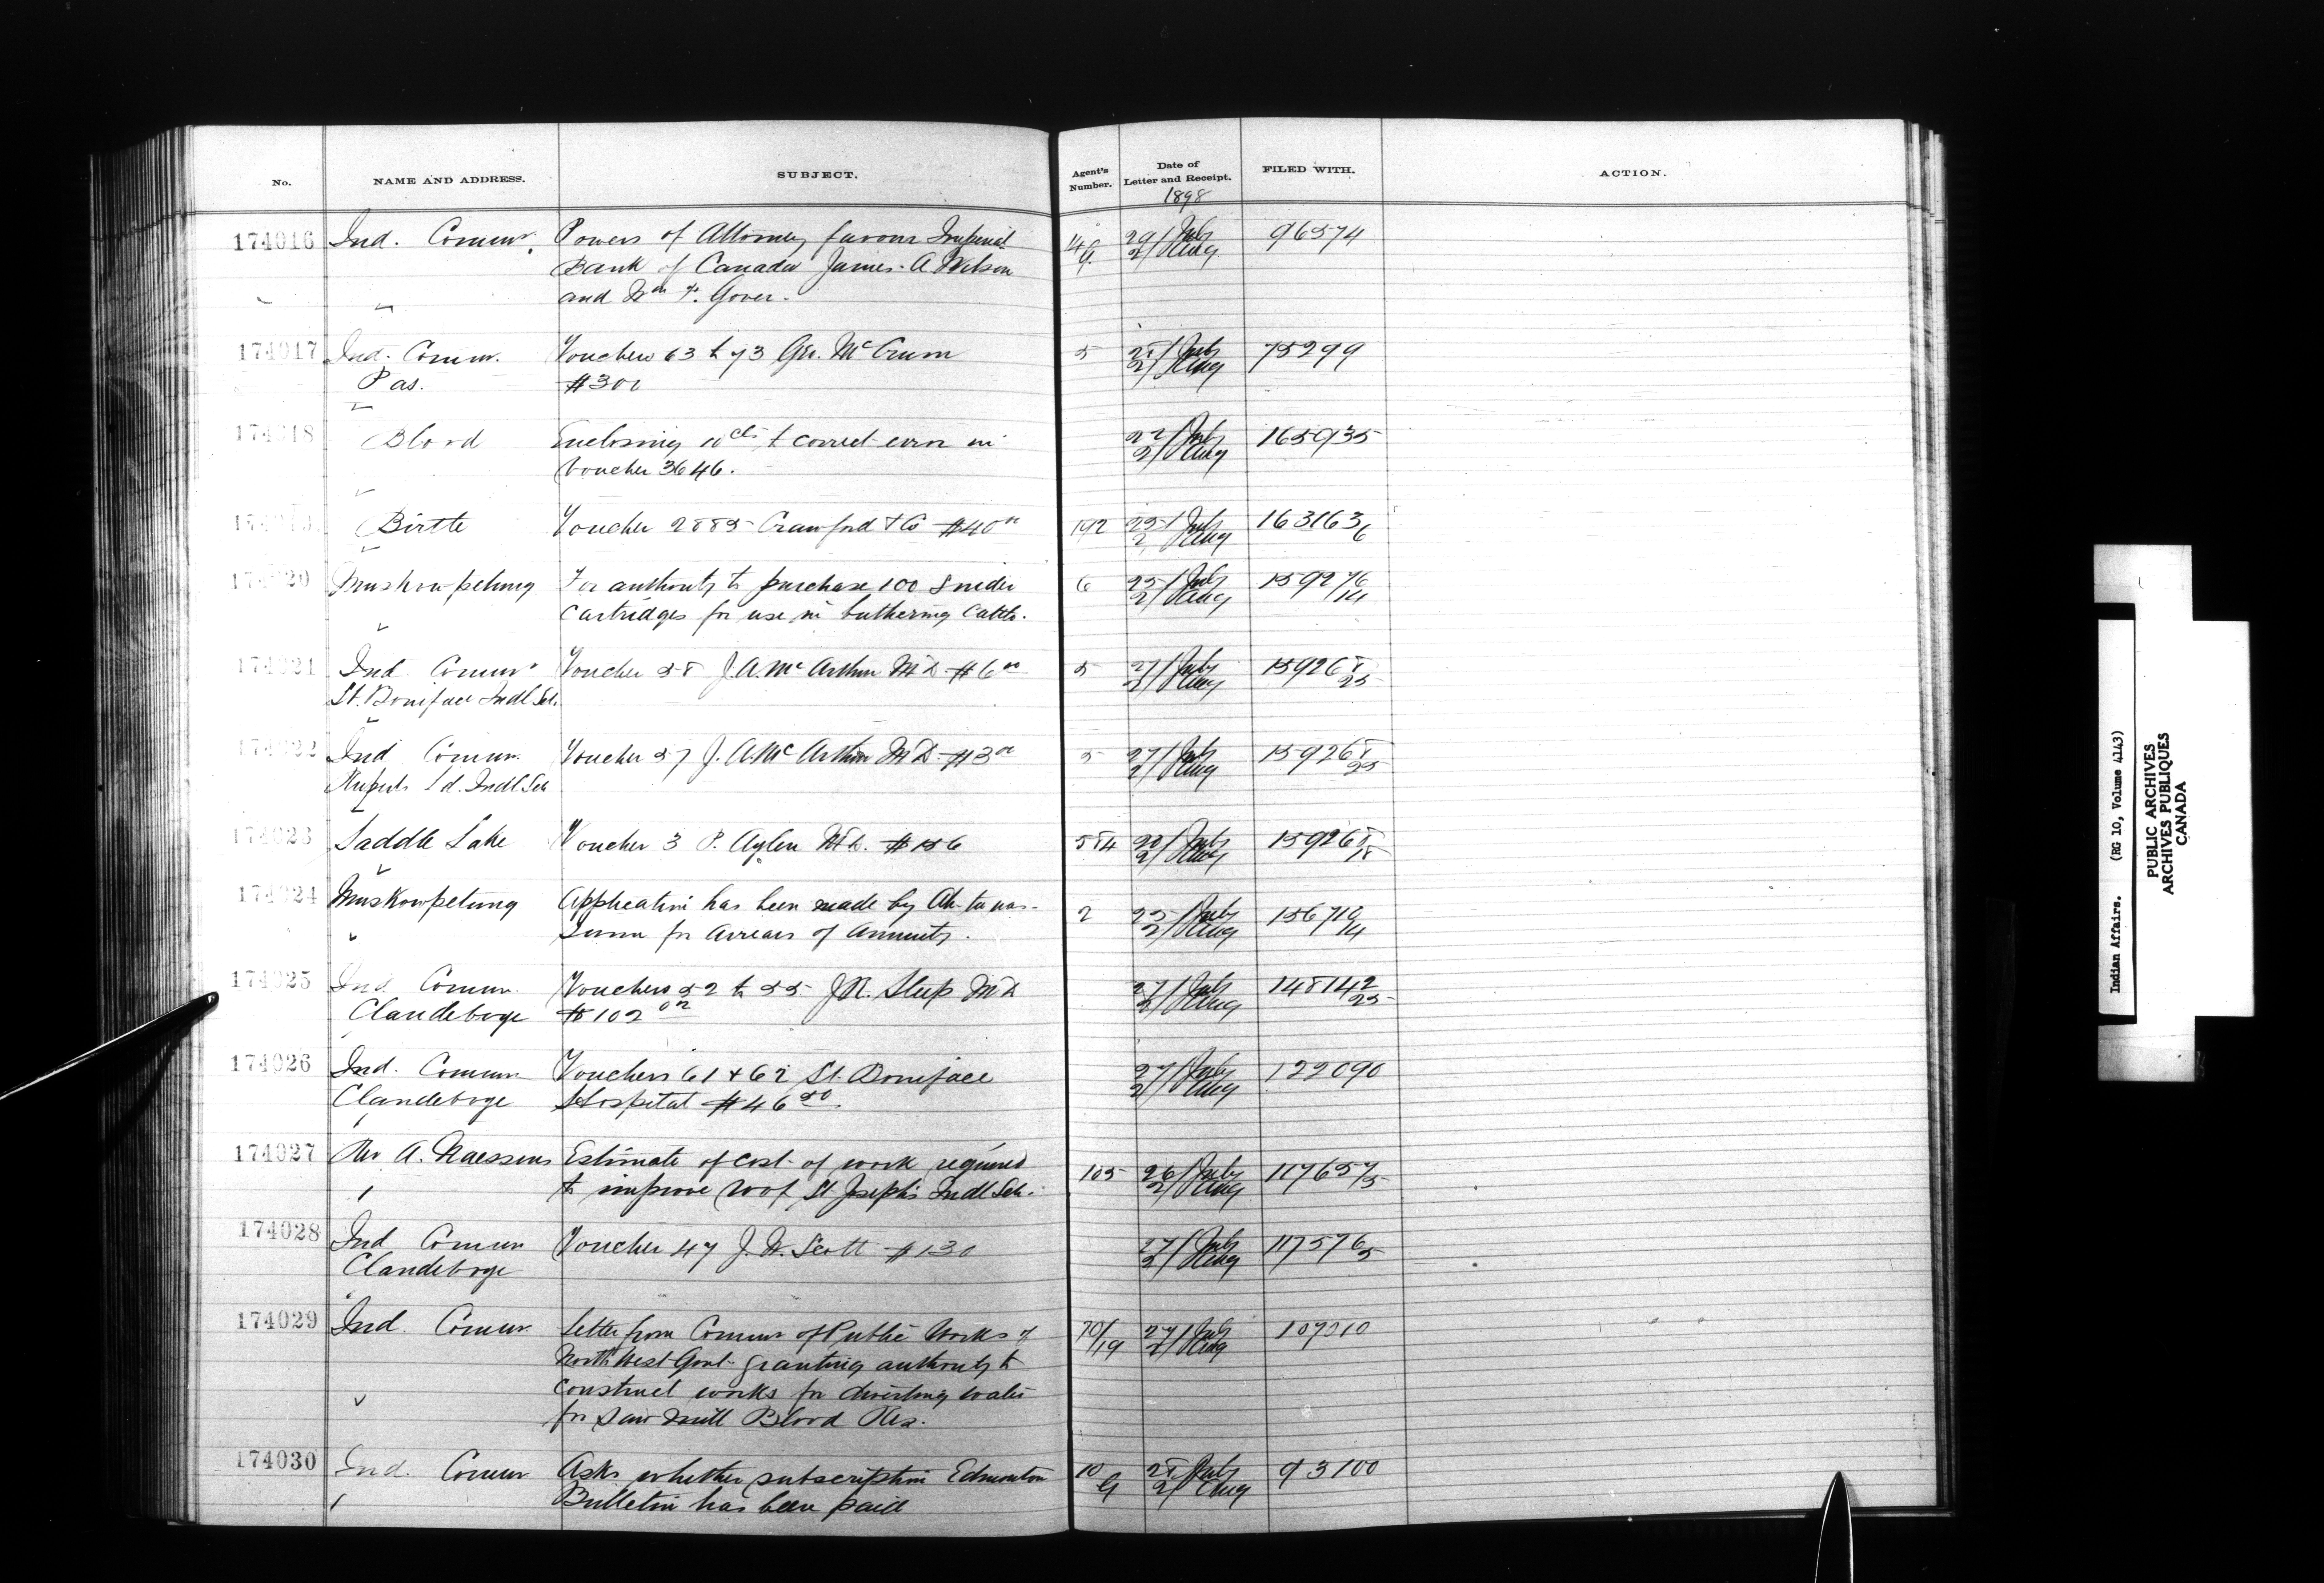 No.
NAME AND ADDRESS.
SUBJECT.
Agent's Number.
Date of Letter and Receipt.
1898
FILED WITH.
ACTION.
174016 Ind. Commr. Powers of Attorney favour Imperial 14/G 29/July 96574
Bank of Canada James A Wilson 2/Aug
and Wm F. Gover.
174017 Ind. Commr. Vouchers 63 to 73 Geo. McCrum 5 28/July 75299
Pas. #300 2/Aug
174018 Blood Enclosing 10cts to correct error in 22/July 165935
Voucher 3646. 2/Aug
Birtle Voucher 2885 Crawford & Co $40 192 25/July 163163/6
2/Aug
174020 Muskowpetung For authority to purchase 100 Snider 6 25/July 159276/14
Cartridges for use in butchering Cattle. 2/Aug
174021 Ind Commr Voucher 58 J.A. McArthur MD $6 5 27/July 159268/25
St. Boniface Indl Sch. 2/Aug
174022 Ind Commr. Voucher 57 J. A. McArthur MD $3 5 27/July 159268/25
Ruperts Ld. Indl Sch 2/Aug
174023 Saddle Lake Voucher 3 P. Aylen MD. $156 584 July 159268/18
2/Aug
174024 Muskowpetung Application has been made by 2 25/July 156710/14
for Arrears of Annuity. 2/Aug
174025 Ind Commr. Vouchers 52 to 55 J.R. Steep MD 27/July 148142/25
Clandeboye $102 2/Aug
174026 Ind. Commr Vouchers 61 & 62 St. Boniface 27/July 122090
Clandeboye Hospital $46 50 2/Aug
174027 Rev A. Naessens Estimate of cost of work required 105 26/July 117657/5
to improve roof St Joseph's Indl Sch. 2/Aug
174028 Ind Commr Voucher 47 J. W. Scott $130 27/July 117576/5
Clandeboye 2/Aug
174029 Ind. Commr. Letter from Commr of Public Works of 70/19 27/July 107010
North West Govt. granting authority to 2/Aug
construct works for diverting water
for Saw Mill Blood Res.
174030 Ind. Commr Asks whether subscription Edmonton 10/G 28/July 93100
Bulletin has been paid 2/Aug
Indian Affairs. (RG 10, Volume 4143)
PUBLIC ARCHIVES
ARCHIVES PUBLIQUES
CANADA